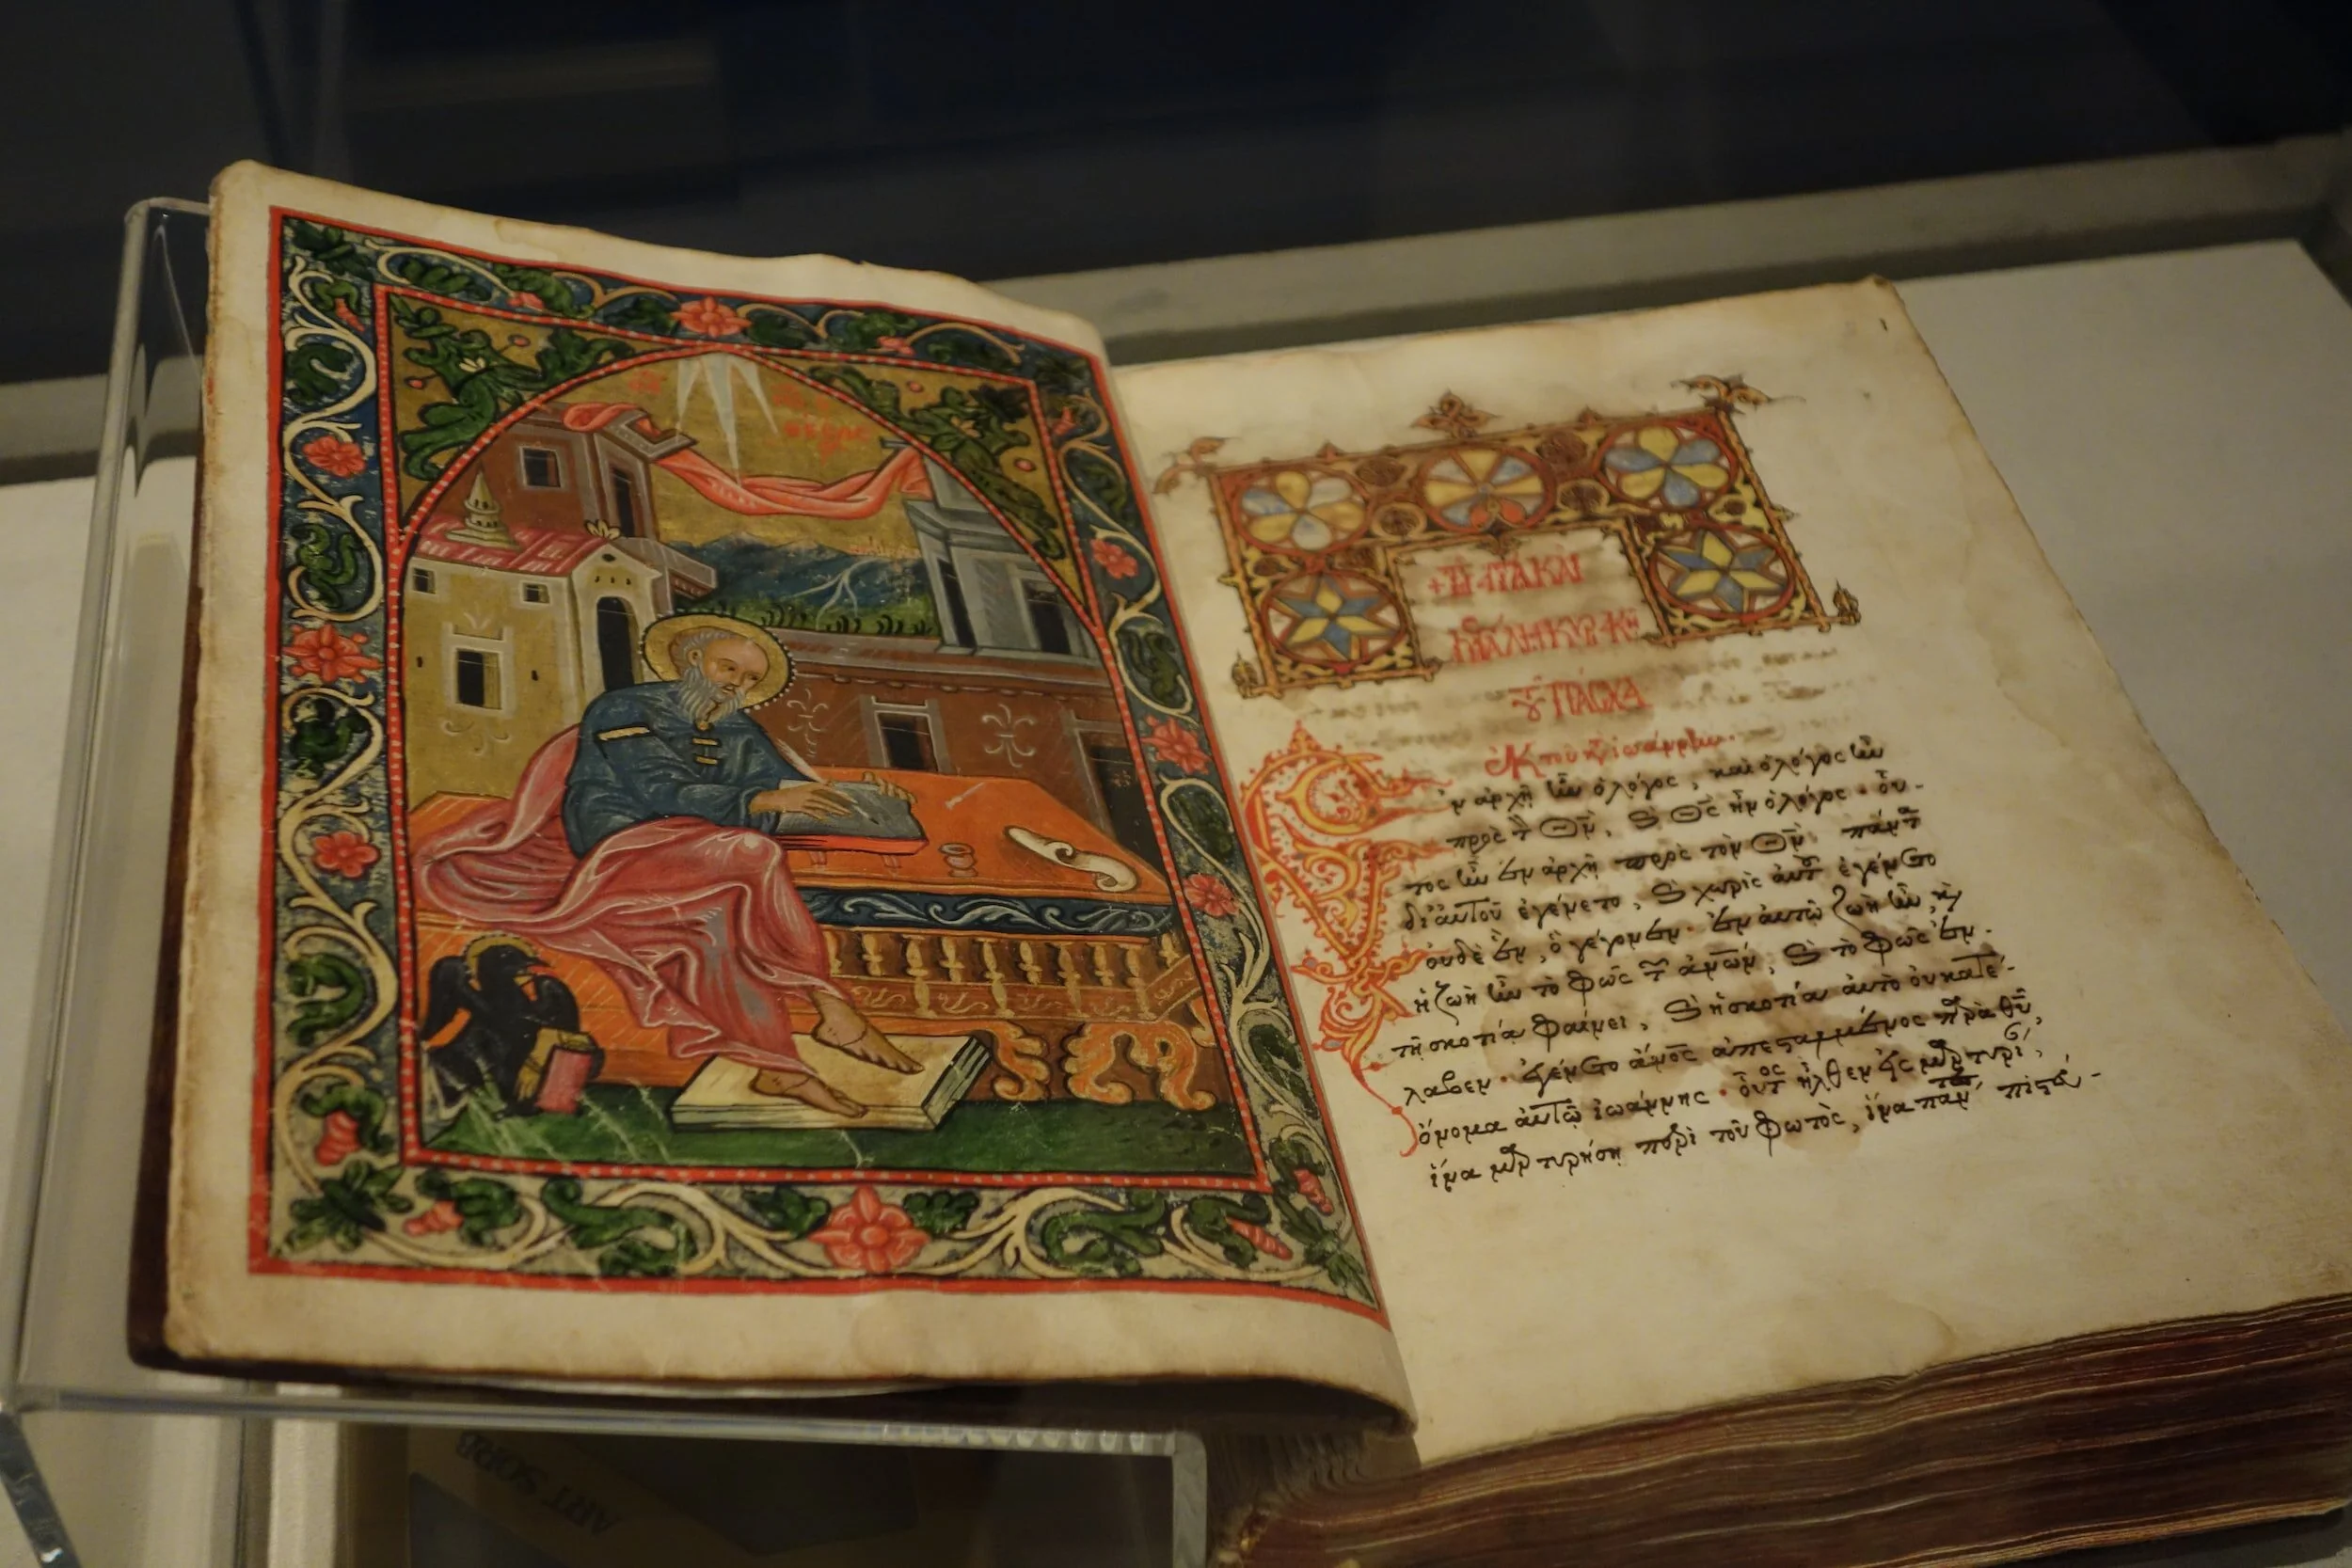 +ΤΗ ΑΓΙΑ ΚΑΙ
ΜΕΓΑΛΗ ΚΥΡΙΑΚΗ
ΤΟΥ ΠΑΣΧΑ
ἐκ τοῦ κατὰ ἰωάννην.
Ἐν ἀρχῇ ἦν ὁ λόγος, καὶ ὁ λόγος ἦν
πρὸς τ̀ Θν̅, ϗ Θς̅ ἦν ὁ λόγος· οὗ-
τος ἦν ἐν ἀρχῇ πρὸς τὸν Θν̅· πάντα
δι' αὐτοῦ ἐγένετο, ϗ χωρὶς αὐτ̑ ἐγένετο
οὐδὲ ἓν, ὃ γέγονεν· ἐν αὐτῶ ζωὴ ἦν, ϗ
ἡ ζωὴ ἦν τὸ φῶς τ̑ ἀνω̅ν, ϗ τὸ φῶς ἐν
τῇ σκοτία φαίνει, ϗ ἡ σκοτία αὐτὸ οὐ κατέ-
λαβεν· ἐγένετο ἄνο̅ς ἀπεσταλμένος παρὰ θυ̅,
ὄνομα αὐτῶ ἰωάννης· οὗτος ἦλθεν εἰς μαρτυρί,
ἵνα μαρτυρήση περὶ τοῦ φωτὸς, ἵνα πάντες πιστεύ-
ART SCRO